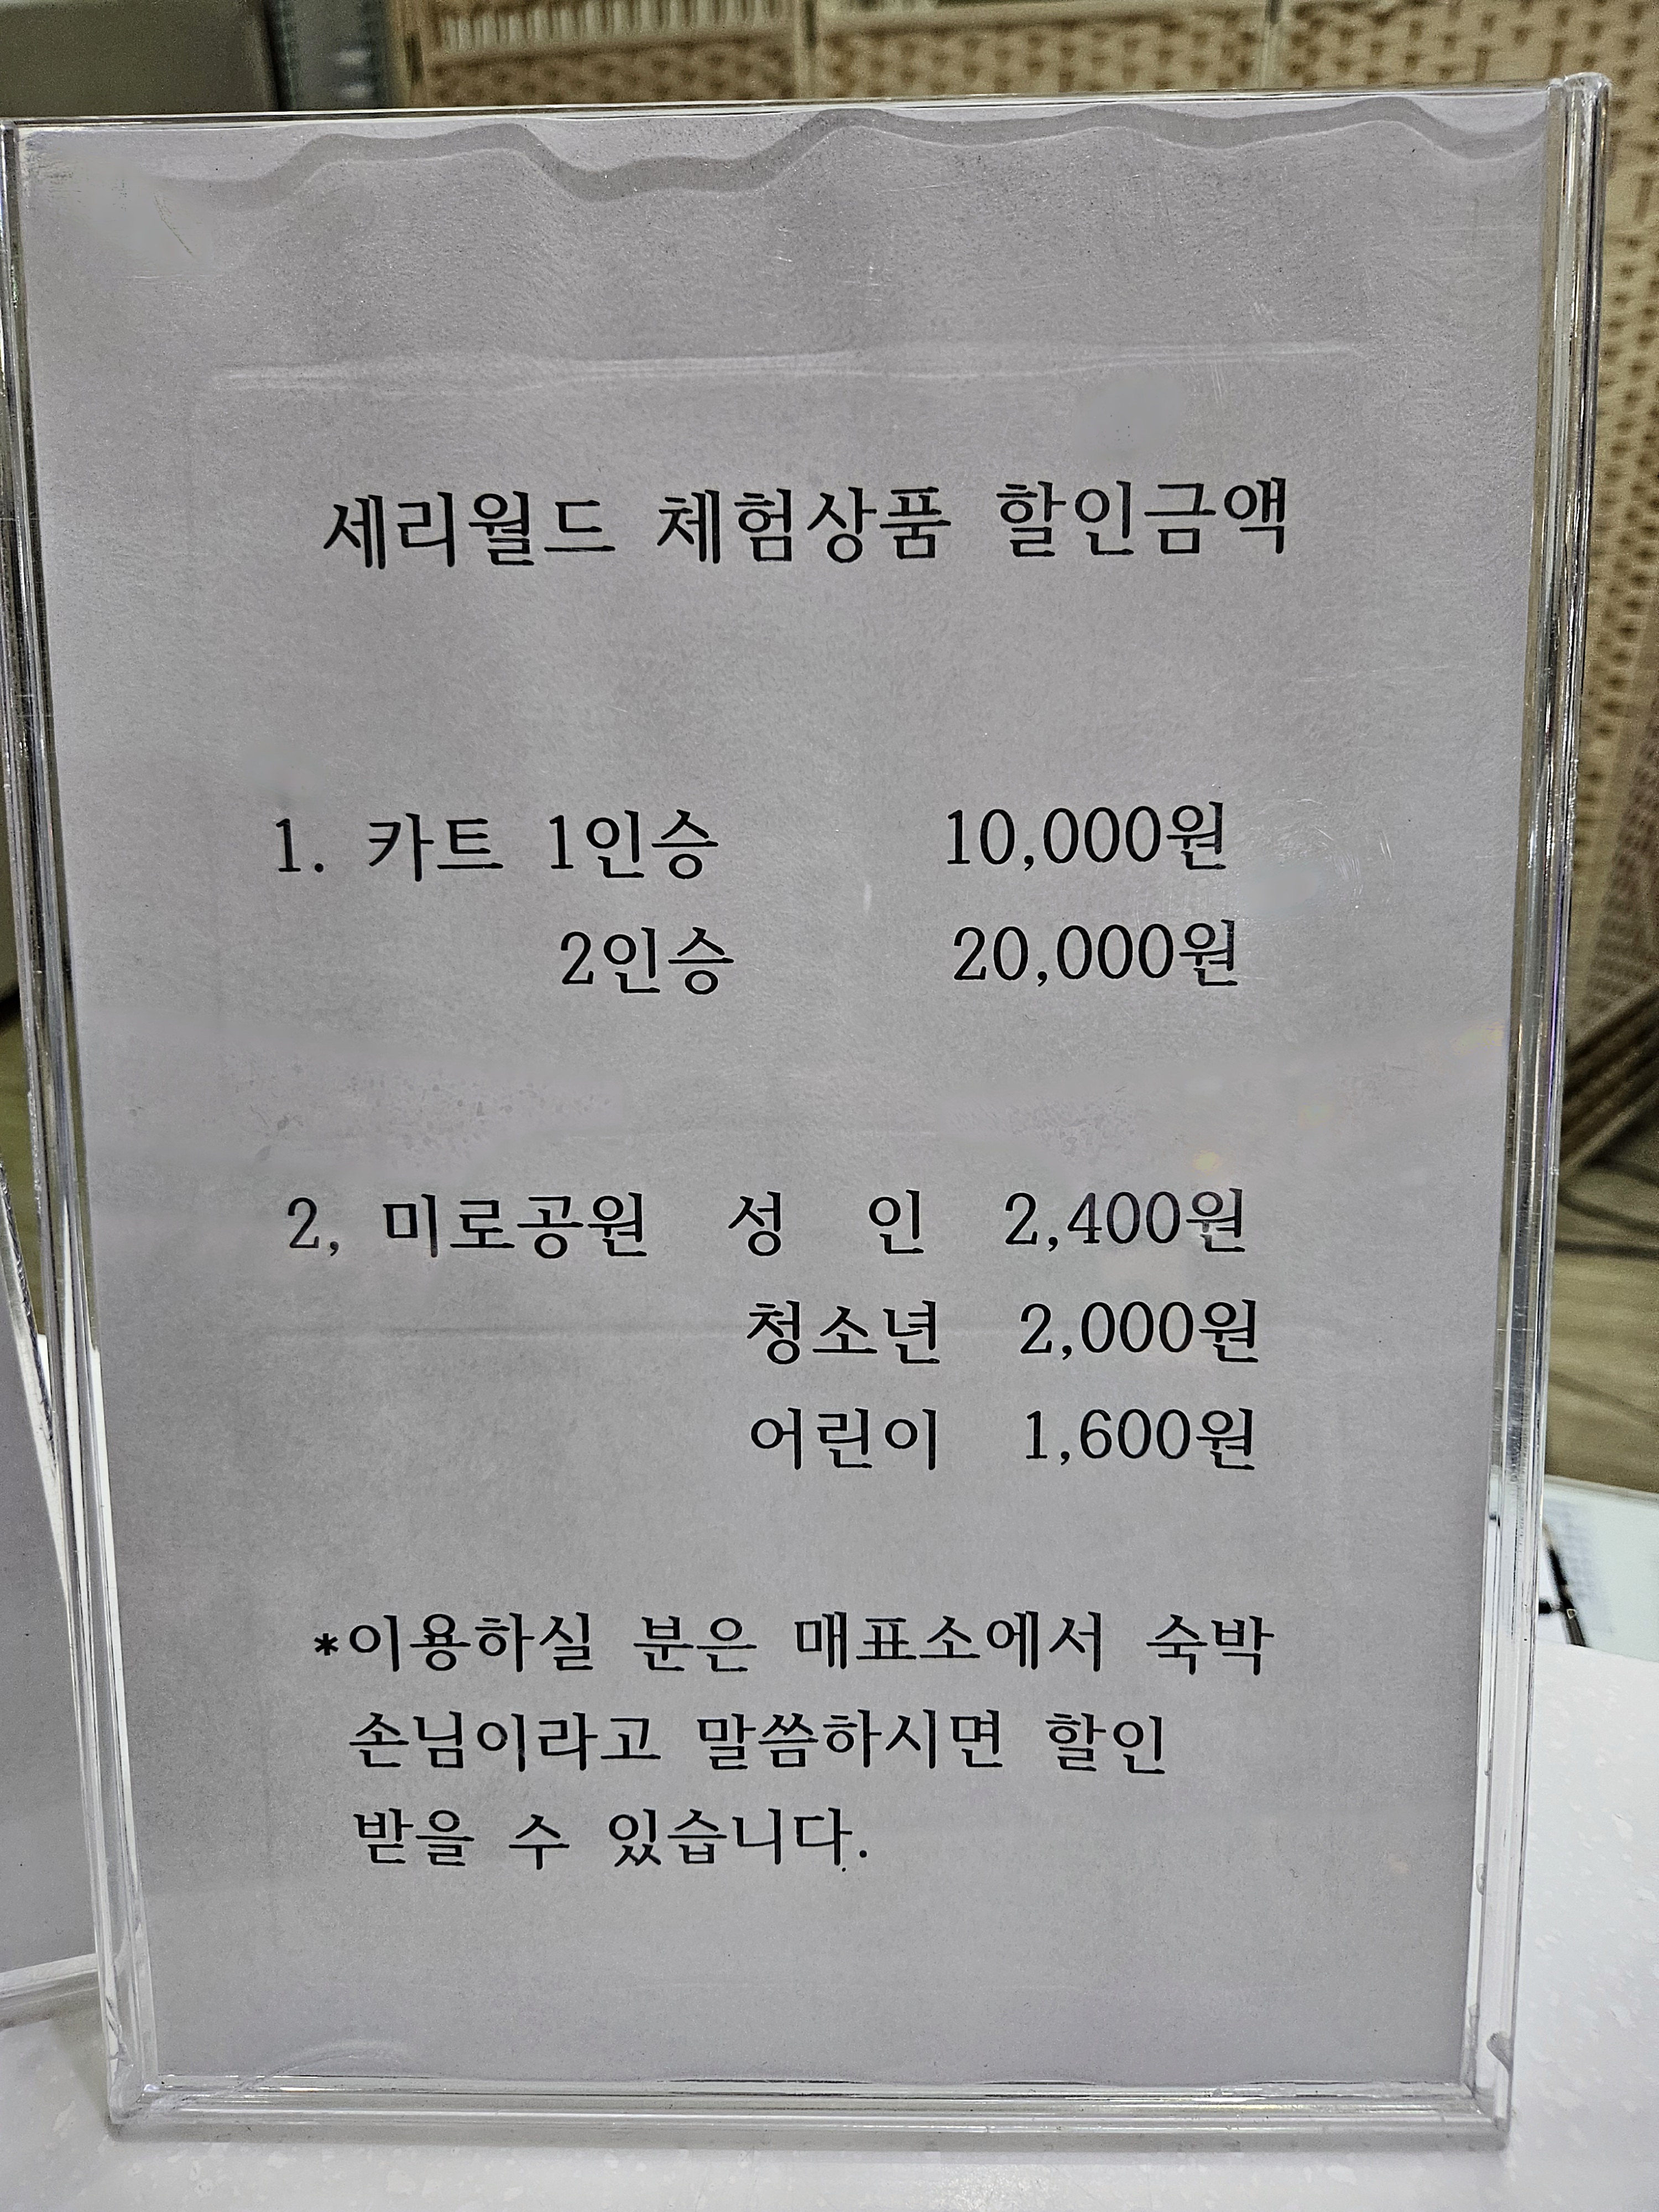 세리월드 체험상품 할인금액
1. 카트 1인승 10,000원
2인승 20,000원
2, 미로공원 성 인 2,400원
청소년 2,000원
어린이 1,600원
*이용하실 분은 매표소에서 숙박
손님이라고 말씀하시면 할인
받을 수 있습니다.